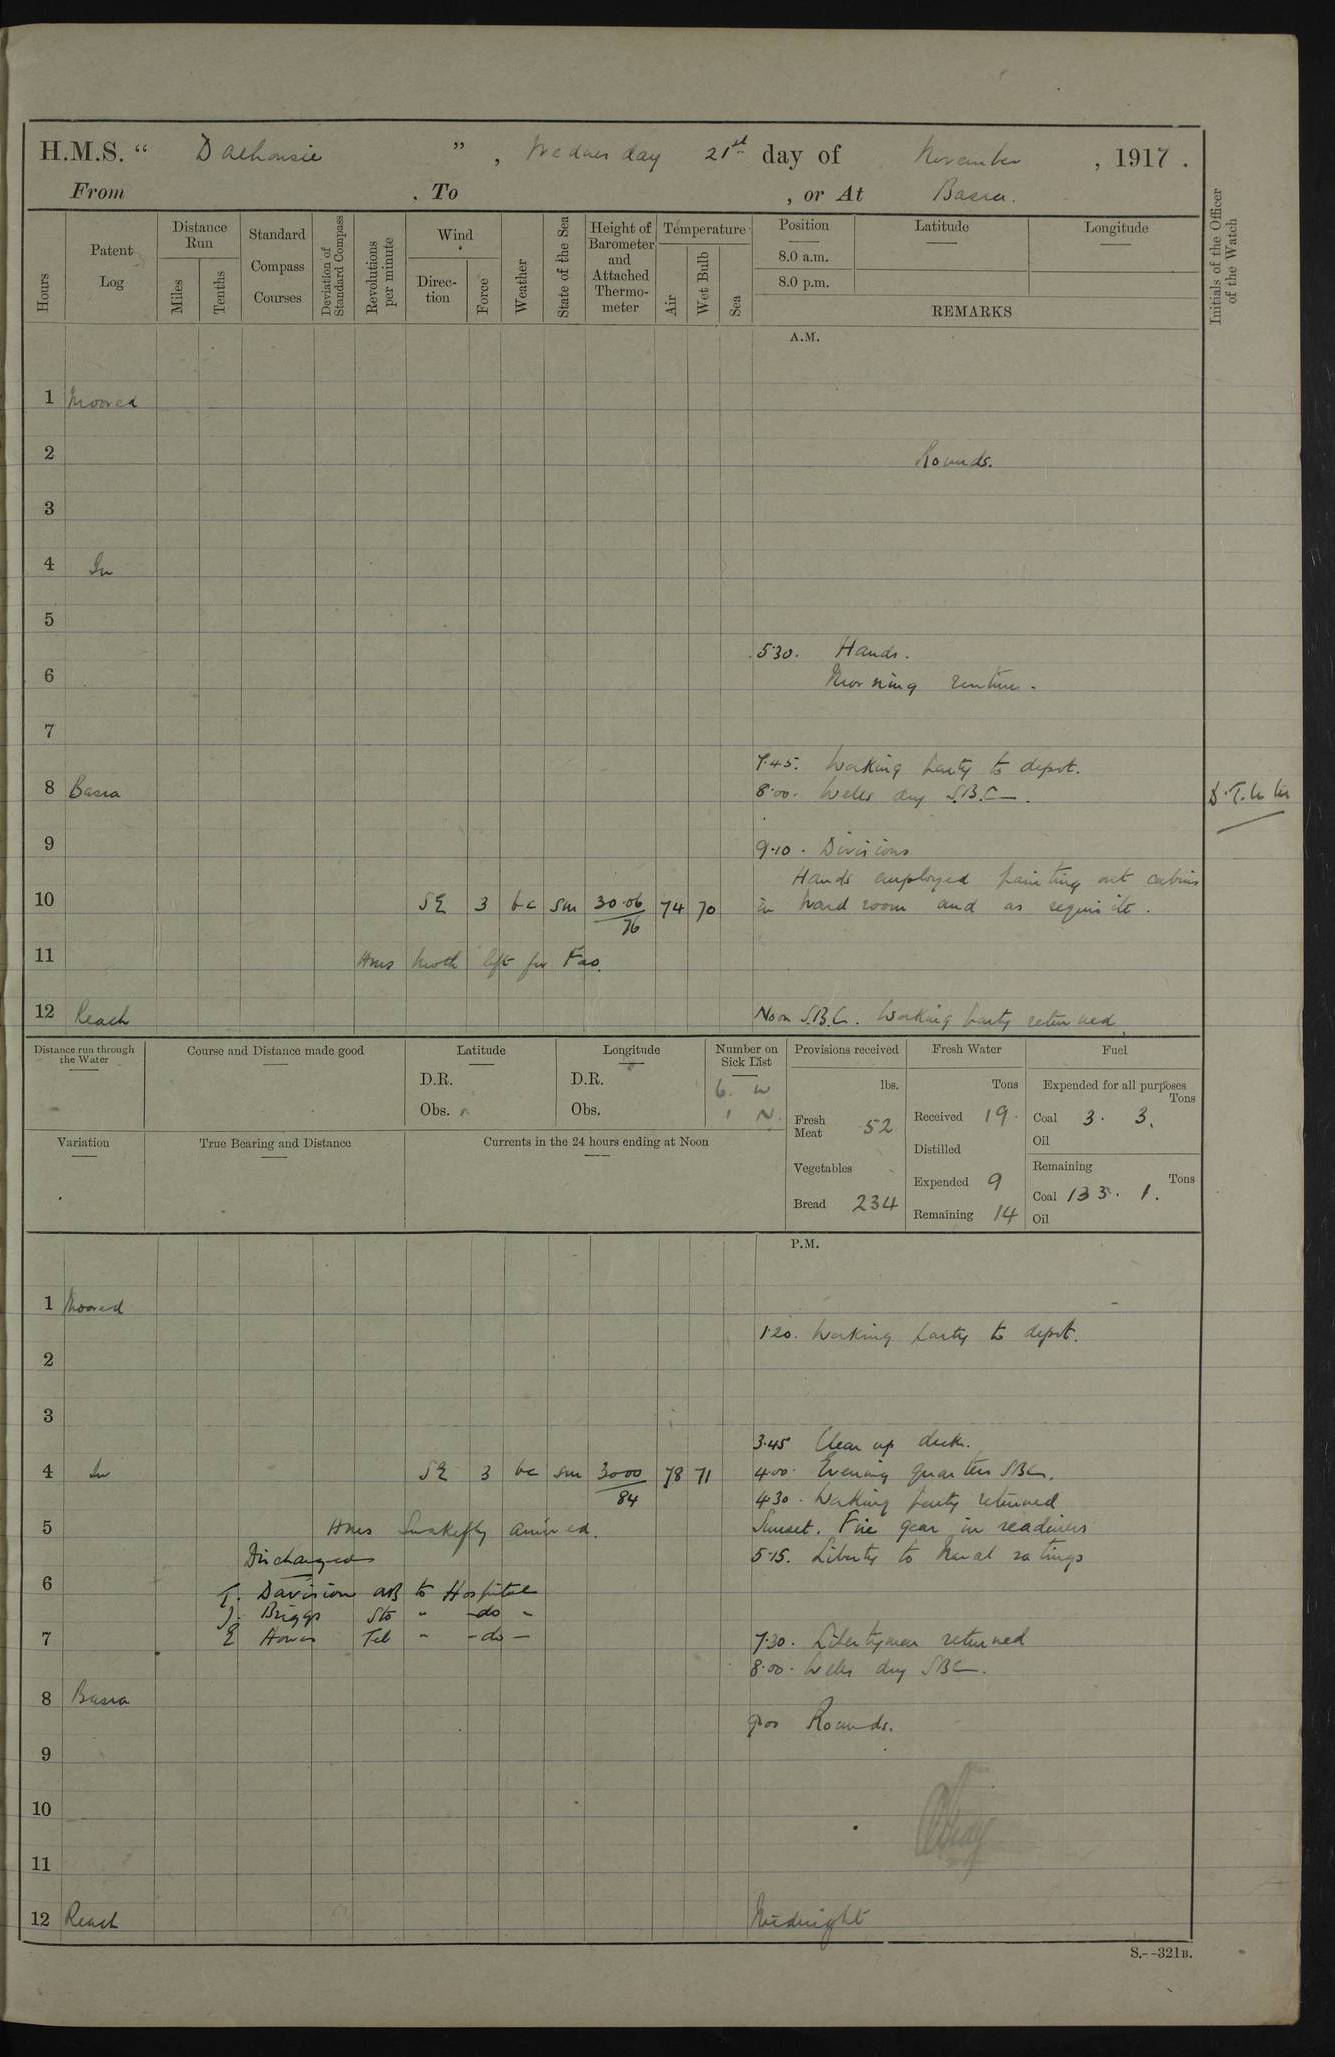 H.M.S. " Dalhousie ", Wednesday 21st day of November, 1917.
From . To , or At Basra.
Hours
Patent Log
Distance Run
Miles
Tenths
Standard Compass Courses
Deviation of Standard Compass
Revolutions per minute
Wind
Direction
Force
Weather
State of the Sea
Height of Barometer and Attached Thermometer
Temperature
Air
Wet Bulb
Sea
Position
8.0 a.m.
8.0 p.m.
Latitude
Longitude
REMARKS
Initials of the Officer of the Watch
A.M.
1 Moored
2 Rounds.
3
4 In
5
5.30. Hands.
6 Morning routine.
7
7.45. Working party to depot.
8 Basra 8.00. Wells dry S.B.C.
9
9.10. Divisions
Hands employed painting out cabins
10 SE 3 bc sm 30.06 76 74 70 in Ward room and as requisite.
11 HMS Moth left for Fao.
12 Reach Noon S.B.C. Working party returned.
Distance run through the Water
Course and Distance made good
Latitude
D.R.
Obs.
Longitude
D.R.
Obs.
Number on Sick List
6. W
1 N.
Provisions received
lbs.
Fresh Meat 52
Vegetables
Bread 234
Fresh Water
Tons
Received 19.
Distilled
Expended 9
Remaining 14
Fuel
Expended for all purposes
Tons
Coal 3. 3.
Oil
Remaining
Tons
Coal 133. 1.
Oil
Variation
True Bearing and Distance
Currents in the 24 hours ending at Noon
P.M.
1 Moored
1.20. Working party to depot.
2
3
3.45 Clear up decks.
4 In SE 3 bc sm 3000 84 78 71 4.00. Evening quarters SBC.
4.30. Working party returned
5 HMS Snakefly arrived. Sunset. Fire gear in readiness
Discharged 5.15. Liberty to Naval ratings
6
T. Davison AB to Hospital
J. Briggs Sto " -do-
7 E Howes Tel " -do- 7.30. Libertymen returned
8.00. Wells dry SBC.
8 Basra
9.00 Rounds.
9
10
11
12 Reach Midnight
S.--321B.